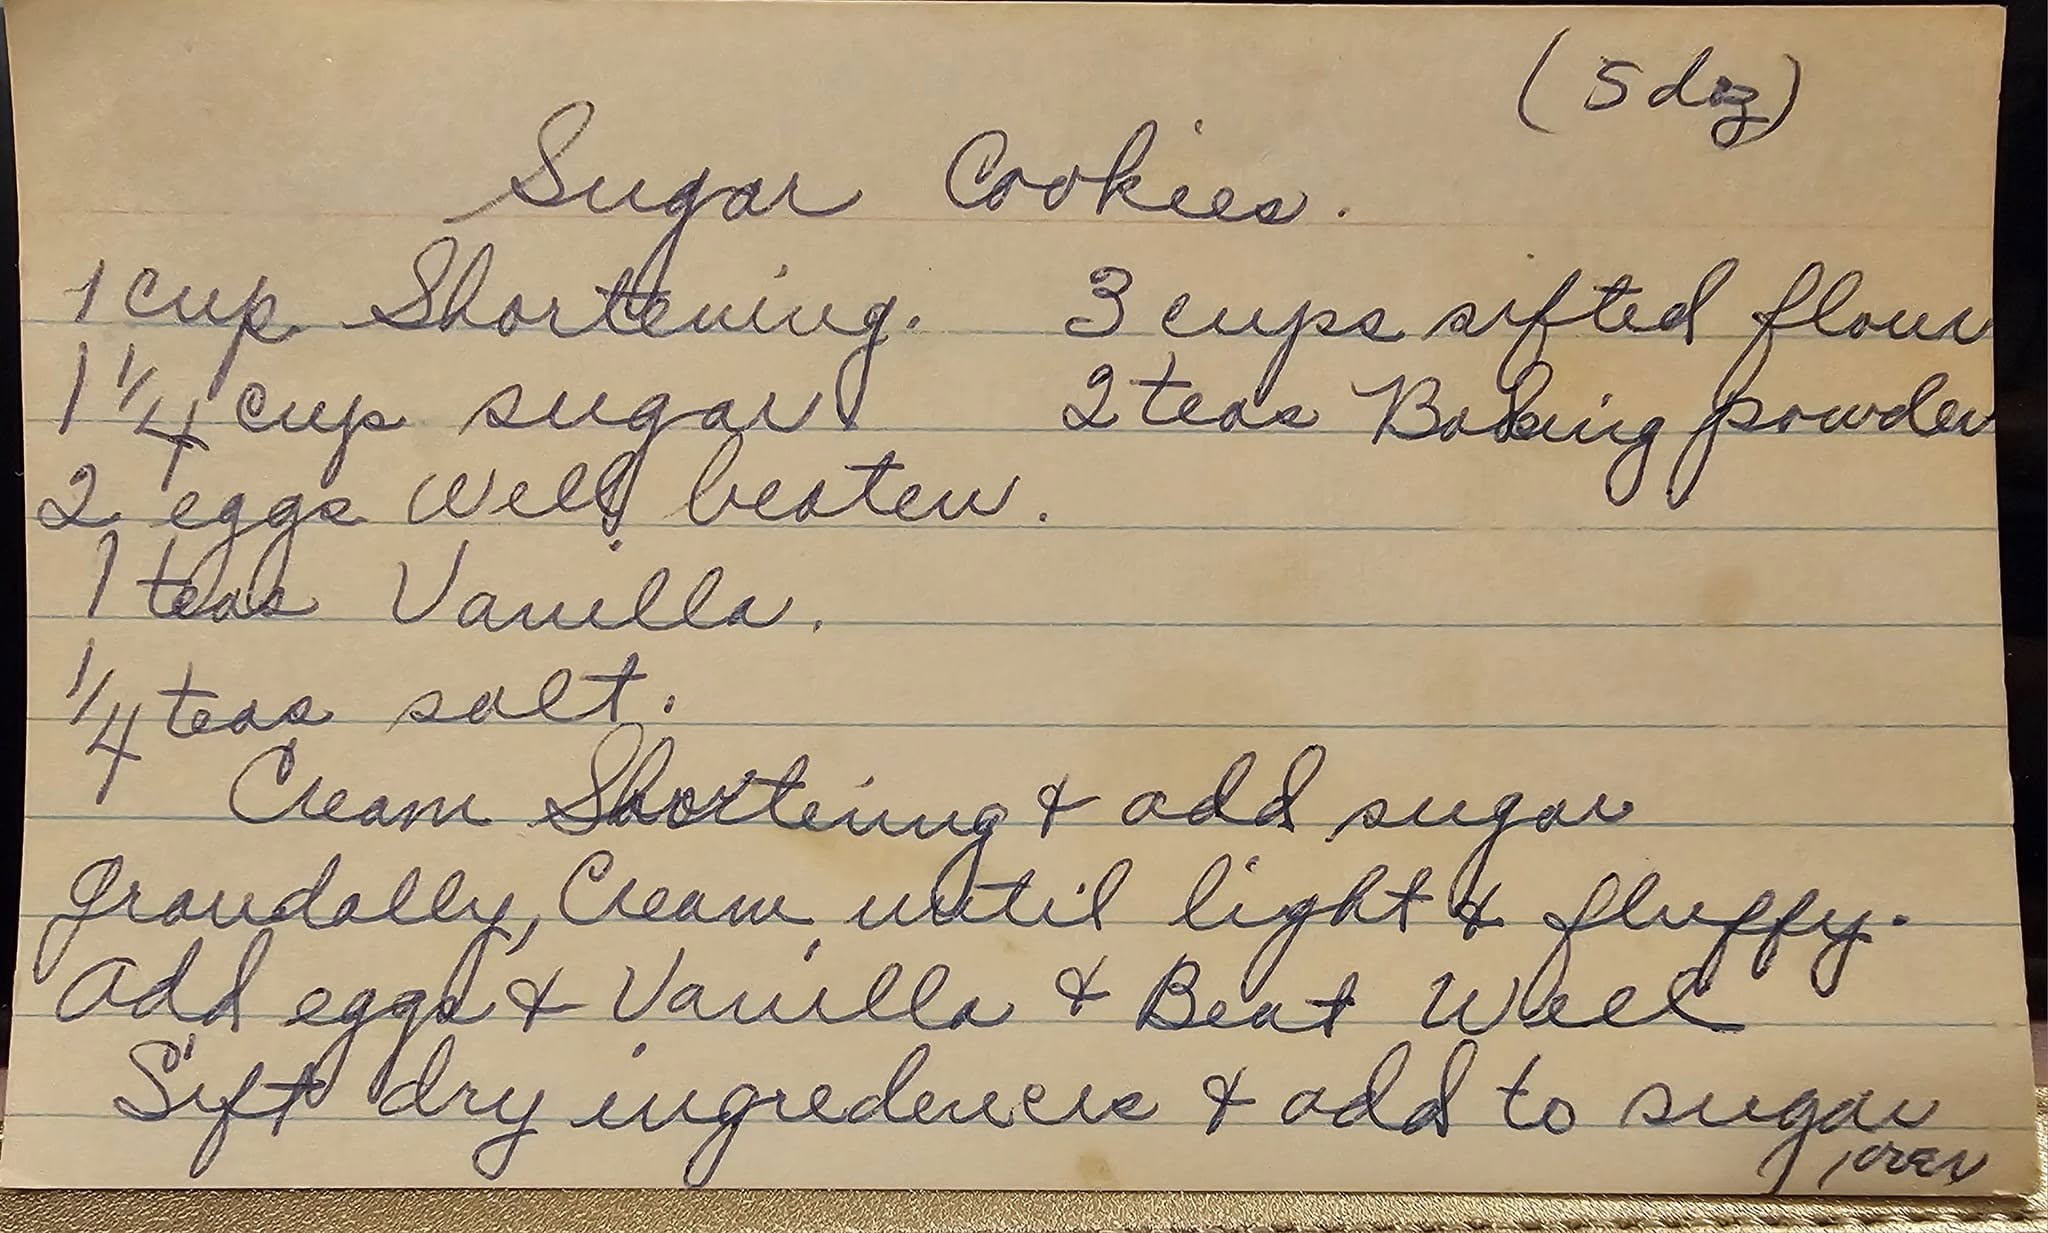 (5 doz)
Sugar Cookies.
1 cup Shortening. 3 cups sifted flour
1 1/4 cup sugar 2 teas Baking powder
2 eggs well beaten.
1 teas Vanilla.
1/4 teas salt.
Cream Shortening & add sugar
graudally, Cream until light & fluffy.
add eggs & Vanilla & Beat Well
Sift dry & add to sugar
over